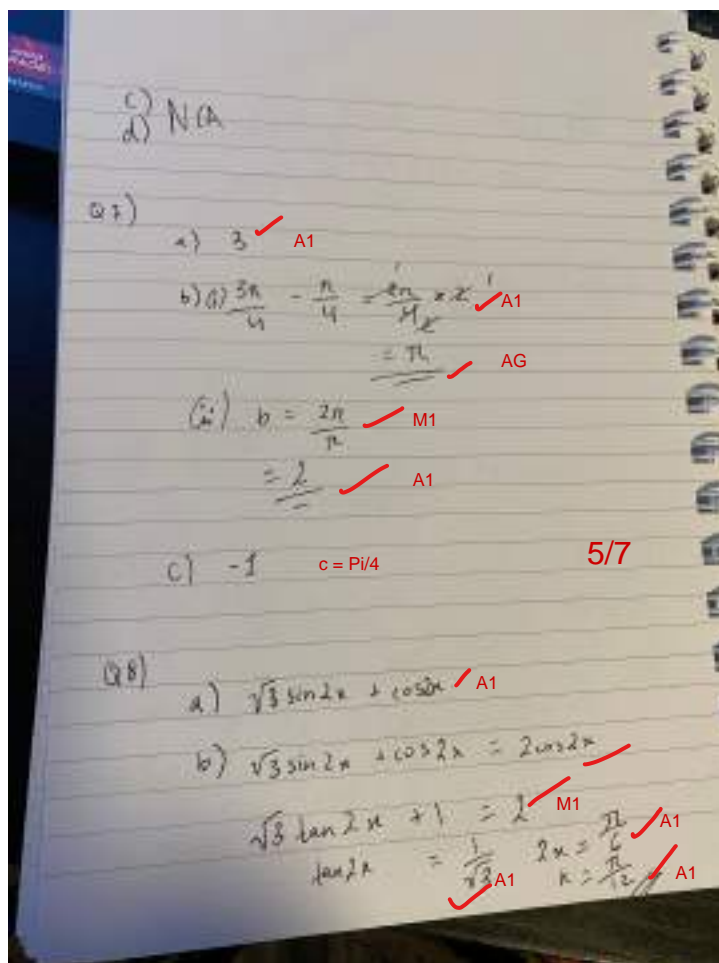 c)
d) N(A
Q7)
a) 3 A1
b) (i) 3π/4 - π/4 = 2π/4 × 2 A1
= π AG
(ii) b = 2π/π M1
= 2 A1
c) -1 c = Pi/4 5/7
Q8)
a) √3 sin2x + cos2x A1
b) √3 sin2x + cos2x = 2cos2x
√3 tan2x + 1 = 2 M1
tan2x = 1/√3 A1 2x = π/6 A1
x = π/12 A1